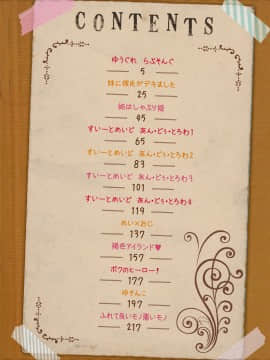 CONTENTS
ゆうぐれ らぶそんぐ
5
妹に彼氏がデキました
25
姫はしゃぶり姫
45
すいーとめいど あん・どぅ・とろわ1
65
すいーとめいど あん・どぅ・とろわ2
83
すいーとめいど あん・どぅ・とろわ3
101
すいーとめいど あん・どぅ・とろわ4
119
めい×おじ
137
褐色アイランド♥
157
ボクのヒーロー!
177
ゆきんこ
197
ふれて良いモノ悪いモノ
217